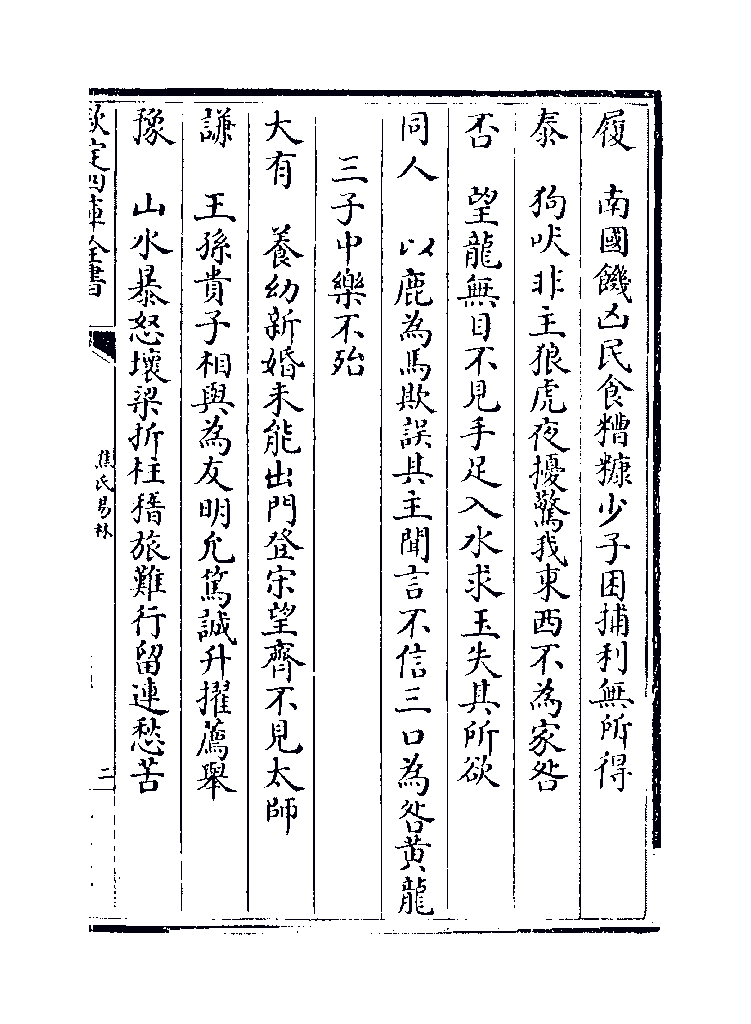 履　南國饑凶民食糟糠少子困捕利無所得
泰　狗吠非主狼虎夜擾驚我東西不為家咎
否　望龍無目不見手足入水求玉失其所欲
同人　以鹿為馬欺誤其主聞言不信三口為咎黄龍
三子中樂不殆
大有　養幼新婚未能出門登宋望齊不見太師
謙　王孫貴子相與為友明允篤誠升擢薦舉
豫　山水暴怒壞梁折柱稽旅難行留連愁苦
欽定四庫全書
焦氏易林
三